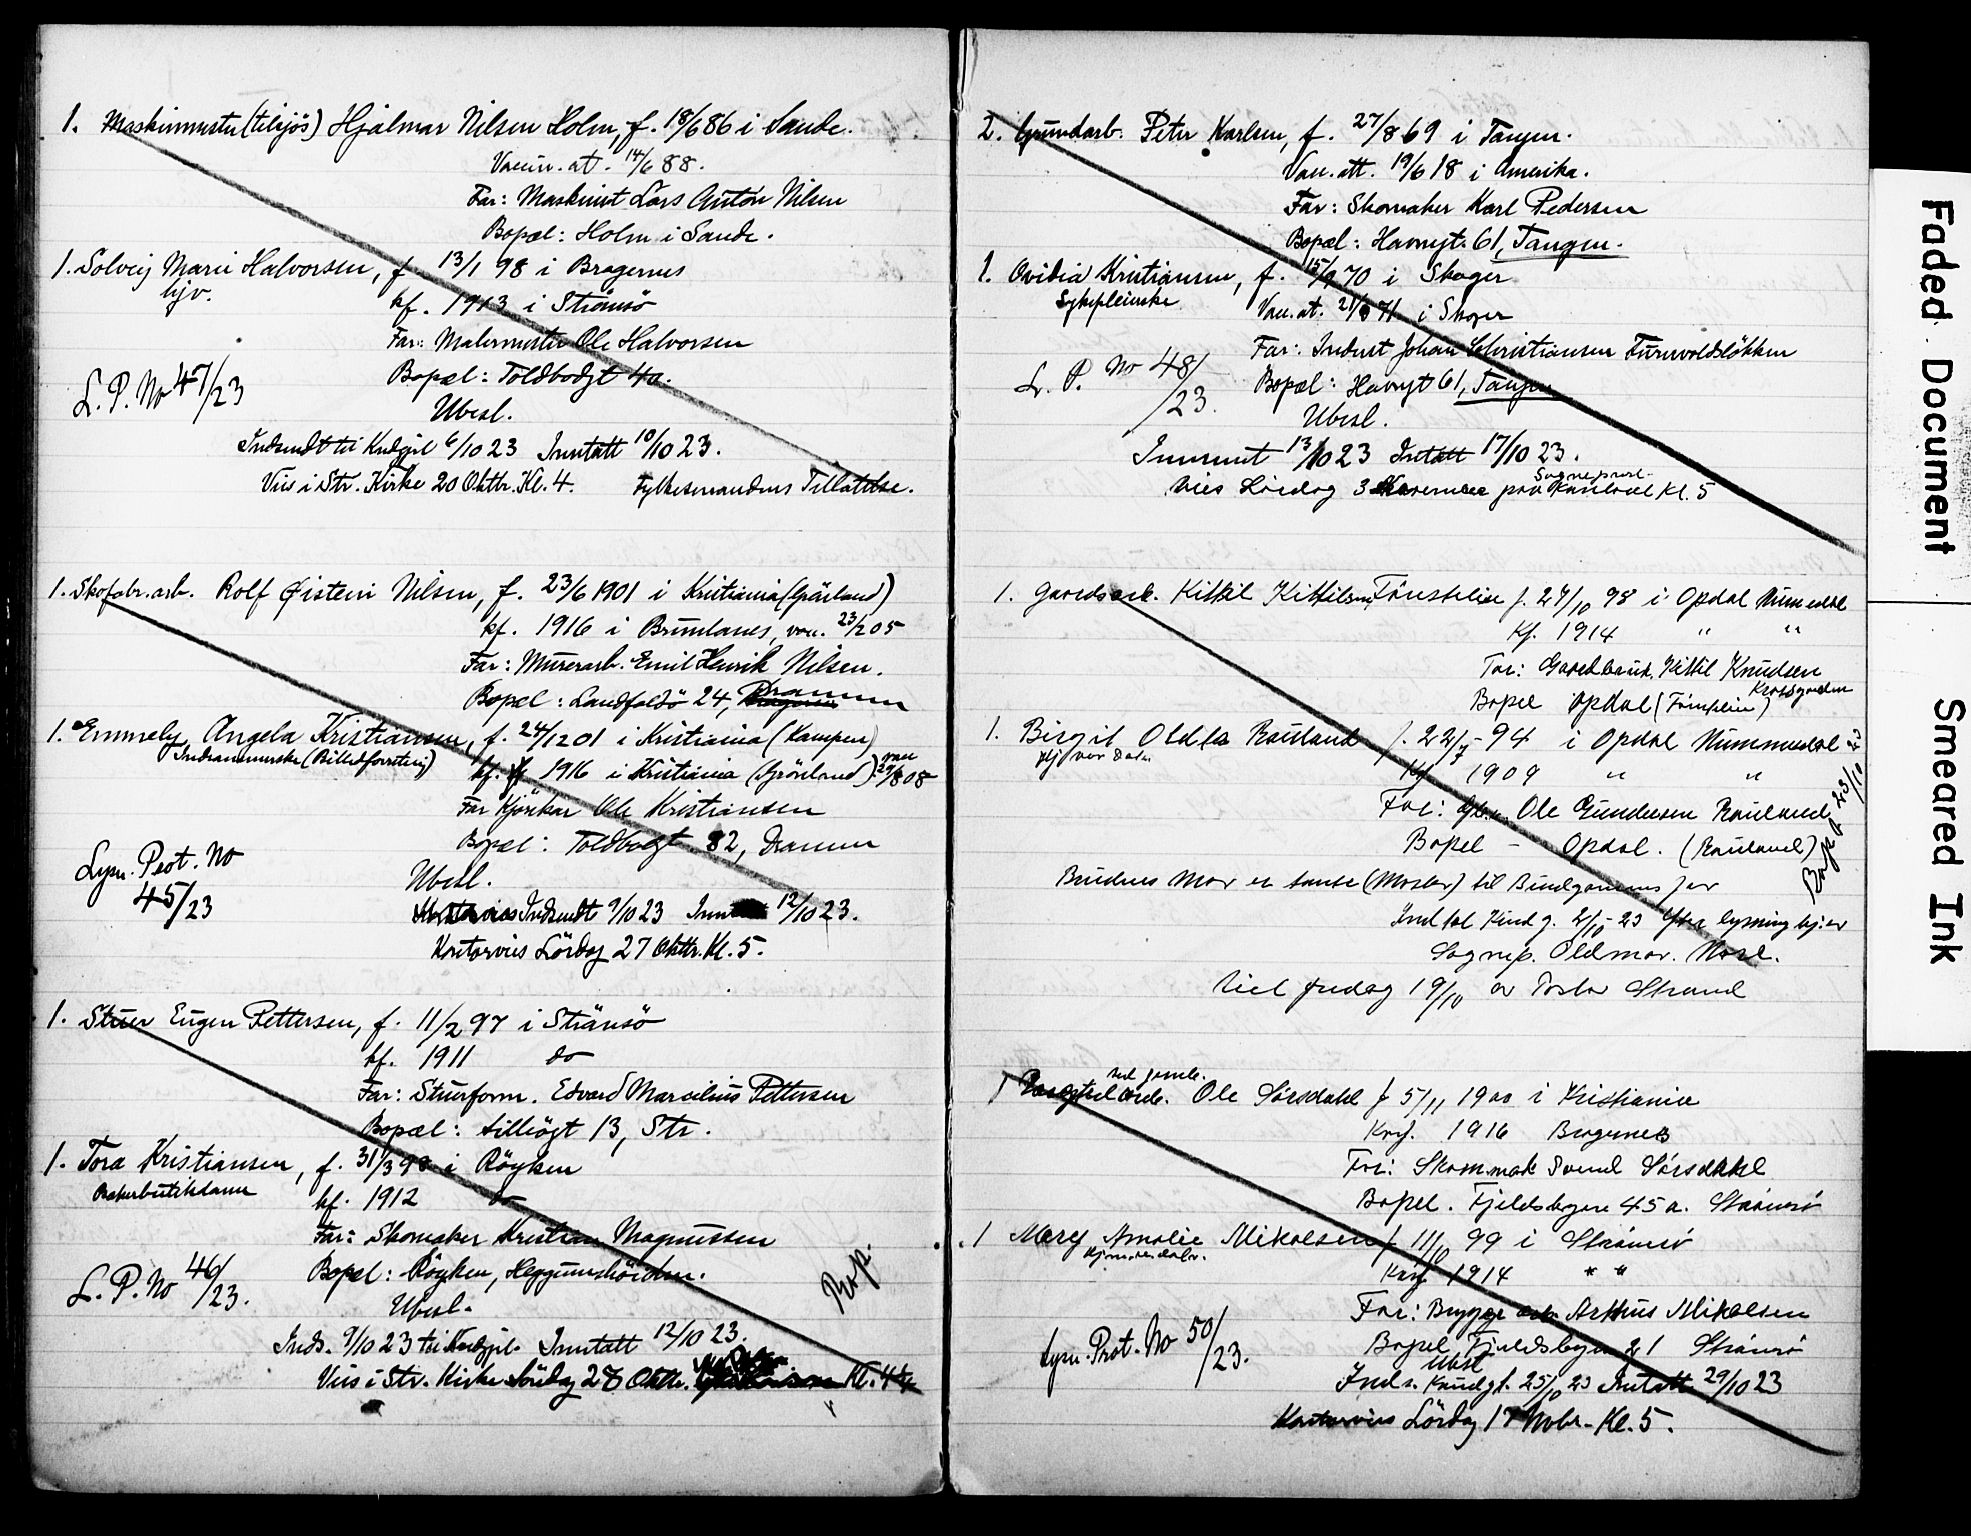 1. Maskinmester (tilsjös) Hjalmar Nilsen Holm, f. 18/6 86 i Sande.
Vaccin. at. 14/6 88.
Far: Maskinist Lars Anton Nilsen
Bopæl: Holm i Sande.
1. Solveig Marie Halvorsen, f. 13/1 98 i Bragernes
hjv.
kf. 1913 i Strömsö
Far: Malermester Ole Halvorsen
Bopæl: Toldbodgt 40.
L. P. No 47/23
Ubesl.
Indsendt til Kndgjl 6/10 23 Inntatt 10/10 23.
Vies i Str. Kirke 20 Oktbr. Kl. 4. Fylkesmandens Tillatelse.
1. Skofabr. arb. Rolf Øistein Nilsen, f. 23/6 1901 i Kristiania (Grönland)
kf. 1916 i Brunlanes, vac. 23/2 05
Far: Murerarb. Emil Henrik Nilsen.
Bopel: Landfaldö 24, Drammen
1. Emmely Angela Kristiansen, f. 24/12 01 i Kristiania (Kampen)
(Billedforretning)
kf. 1916 i Kristiania (Grönland), vac 29/8 08
Far Kjörekar Ole Kristiansen
Bopæl: Toldbodgt 82, Dramm
Lysn. Prot. No
45/23
Ubesl.
Indsendt 9/10 23 12/10 23.
Kontorvies Lördag 27 Oktbr. Kl. 5.
1. Stuer Eugen Pettersen, f. 11/2 97 i Strömsö
kf. 1911 do
Far: Stuerform. Edvard Marcelius Pettersen
Bopæl: Tilliögt 13, Str.
1. Tora Kristiansen, f. 31/3 98 i Röyken
Bakerbutikdame
kf. 1912 do
Far: Skomaker Kristian Magnussen
L. P. No 46/23.
Bopel: Röyken, Heggumshöiden.
Rop.
Ubesl.
Inds. 9/10 23 til Kndgjl. Inntatt 12/10 23.
Vies i Str. Kirke Söndag 28 Oktbr. Kl.
2. Grundarb. Peter Karlsen, f. 27/8 69 i Tangen.
Vac. att. 19/6 18 i Amerika.
Far: Skomaker Karl Pedersen
Bopæl: Havnegt. 61, Tangen.
1. Ovidia Kristiansen, f. 15/9 70 i Skoger
Sykepleierske
Vac. at. 21/8 71 i Skoger
Far: Inderst Johan Christiansen Furuvoldslökken
L. P. No 48/23.
Bopæl: Havnegt 61, Tangen
Ubesl.
Innsent 13/10 23 Intatt 17/10 23.
Vies Lördag 3 November paa Sogneprest. Kontoret Kl. 5
1. Gaardsarb. Kittil Kittilsen f. 27/10 98 i Opdal Numedal
Kf. 1914 " "
Far: Gaardbruk. Kittil Knudsen
Bopel Opdal
1. Birgit Rauland f. 22/7 - 94 i Opdal Nummedal
Kf 1909 " "
Far: Gbr. Ole Gundersen Rauland
Bopel - Opdal. (Rauland)
Brudens Mor er tante (Moster) til Brudgommens far
23 Efter lysning hj: av
Sognep. Oldmar.
Viet fredag 19/10 av Pastor Strand
1 ved jernb. Ole Sörsdahl f 5/11 1900 i Kristiania
Konf. 1916 Bragernes
Far: Skommak Svend Sörsdahl
Bopel. Fjeldsbyen 45 a. Strömsö
1 Mary Amalie Mikalsen f 11/10 99 i Strömsö
Hjemmedatr.
Konf 1914 " "
Far: Brygge arb Arthus Mikalsen
Lysn. Prot. No 50/23.
Bopel Fjeldsbyen 21 Strömsö
Ubesl
Inds. Kundgj. 25/10 23 Intatt 29/10 23
Kontorvies Lördag 17 Novbr. Kl. 5.
Faded Document
Smeared Ink